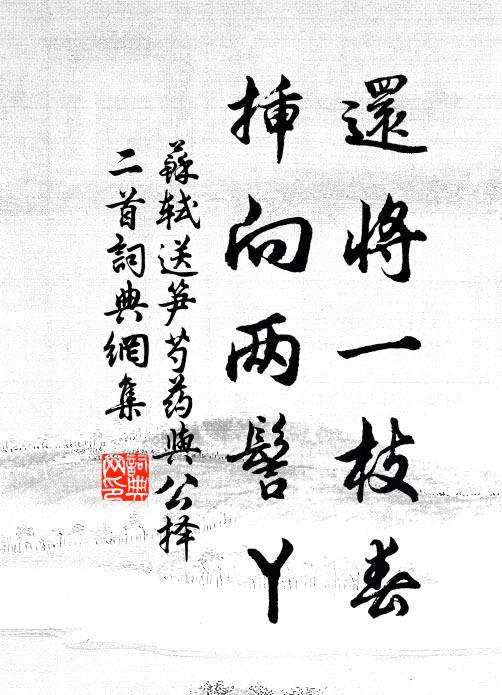 還將一枝春
插向两髻丫
蘇軾送笋芍药與公择
二首詞典網集
詞典网印